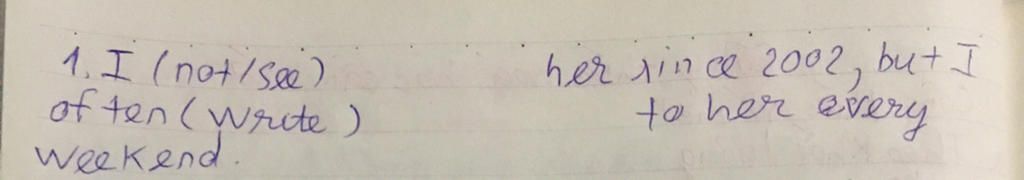 1. I (not/see) her since 2002, but I
often (write) to her every
weekend.